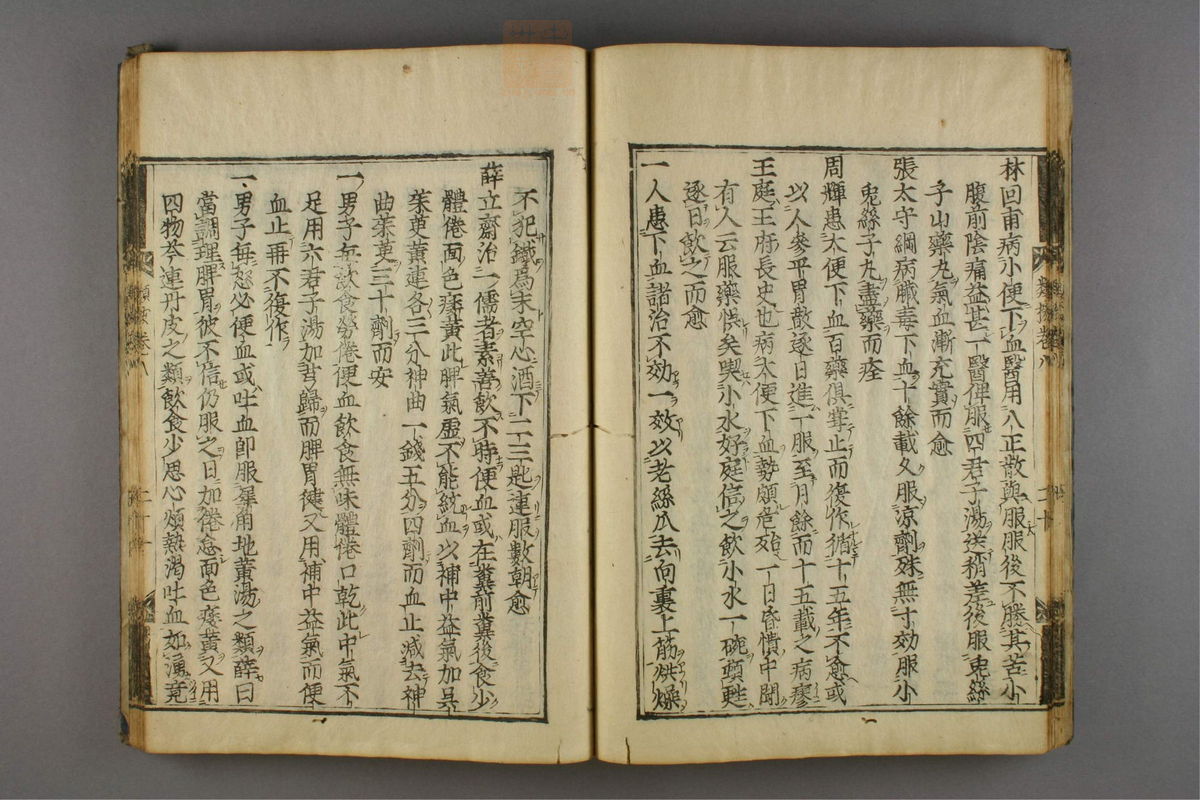 林回甫病小便下血醫用八正散與服服後不勝其苦小
腹前陰痛益甚一醫俾服四君子湯送稍差後服兎絲
子山藥丸氣血漸充實而愈
張太守綱病臟毒下血十餘載久服凉劑殊無寸効服小
兎絲子丸盡藥而痊
周輝患大便下血百藥俱嘗止而復作循十五年不愈或
以人參平胃散逐日進一服至月餘而十五載之病瘳
王庭王府長史也病大便下血勢頗危殆一日昏憒中聞
有人云服藥悞矣喫小水好庭信之飲小水一碗頓甦
逐日飲之而愈
一人患下血諸治不効一效以老絲瓜去向裏上筋烘燥
不犯鐵爲末空心酒下二三匙連服數朝愈
薛立齋治一儒者素善飲不時便血或在糞前糞後食少
體倦面色痿黃此脾氣虛不能統血以補中益氣加吳
茱萸黃連各三分神曲一錢五分四劑而血止減去神
曲茱萸三十劑而安
一男子每飲食勞倦便血飲食無味體倦口乾此中氣不
足用六君子湯加芎歸而脾胃健又用補中益氣而便
血止再不復作
一男子每怒必便血或吐血卽服犀角地黃湯之類薛曰
當調理脾胃彼不信仍服之日加倦怠面色痿黃又用
四物芩連丹皮之類飲食少思心煩熱渴吐血如湧竟